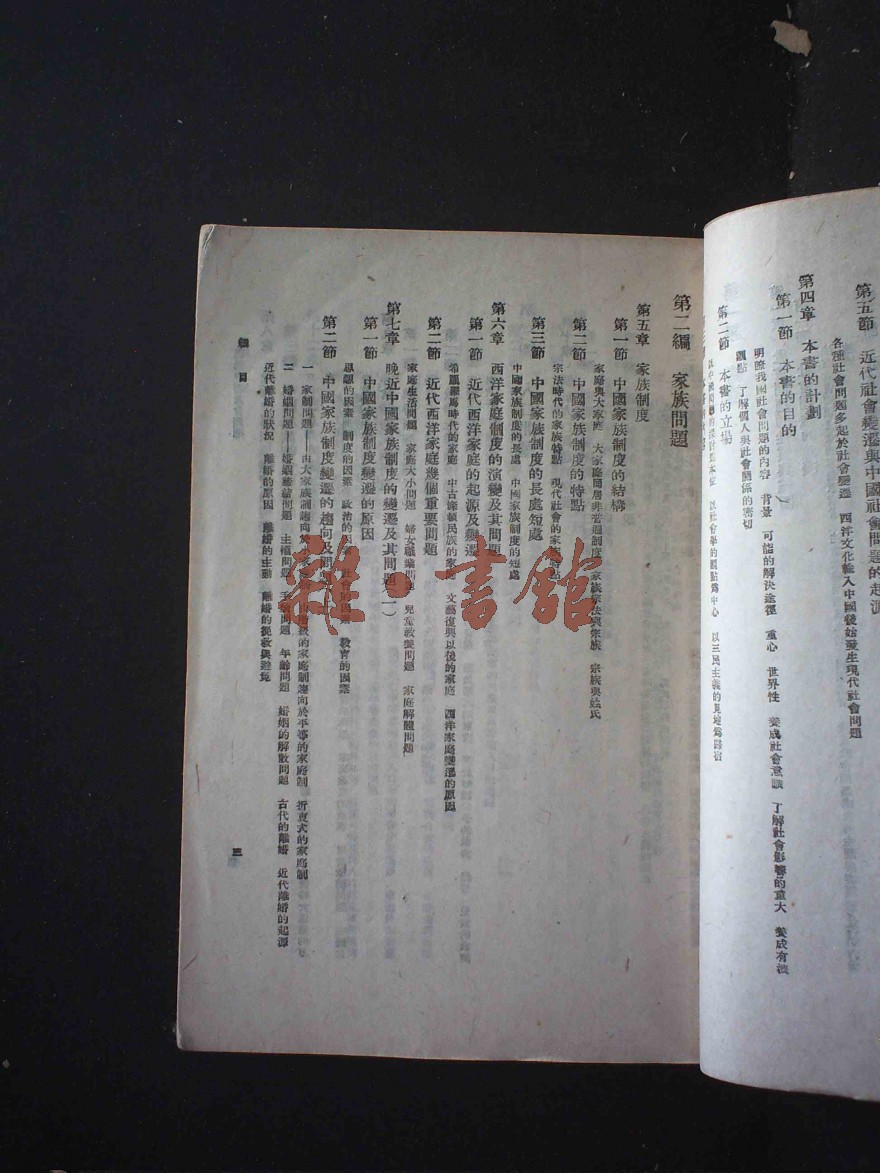 第五節 近代社會變遷與中國社會問題的起源
各種社會問題多起於社會變遷 西洋文化輸入中國後始發生現代社會問題
第四章 本書的計劃
第一節 本書的目的
明瞭我國社會問題的內容 背景 可能的解決途徑 重心 世界性 養成社會意識 了解社會影響的重大 養成有機
觀點 了解個人與社會關係的密切
第二節 本書的立場
以社會學的觀點為中心 以三民主義的見地為歸宿
第二編 家族問題
第五章 家族制度
第一節 中國家族制度的結構
家庭與大家庭 大家庭同居非普遍制度 家族 宗法與宗族 宗族與姓氏
第二節 中國家族制度的特點
宗法時代的家族特點 現代社會的家族特點
第三節 中國家族制度的長處短處
中國家族制度的長處 中國家族制度的短處
第六章 西洋家庭制度的演變及其問題
第一節 近代西洋家庭的起源及變遷
希臘羅馬時代的家庭 中古條頓民族的家庭 文藝復興以後的家庭 西洋家庭變遷的原因
第二節 近代西洋家庭幾個重要問題
家庭生活問題 家庭大小問題 婦女職業問題 兒童教養問題 家庭解體問題
第七章 晚近中國家族制度的變遷及其問題(一)
第一節 中國家族制度變遷的原因
思想的因素 制度的因素 政治的因素 社會的因素 教育的因素
第二節 中國家族制度變遷的趨向及問題(上)
一 家制問題——由大家族制趨向於 階級的家庭制趨向於平等的家庭制 折衷式的家庭制
二 婚姻問題——婚姻締結問題 主權問題 手續問題 年齡問題 婚姻的解散問題 古代的離婚 近代離婚的起源
近代離婚的狀況 離婚的原因 離婚的主動 離婚的挽救與避免
細目
三
雜·書館